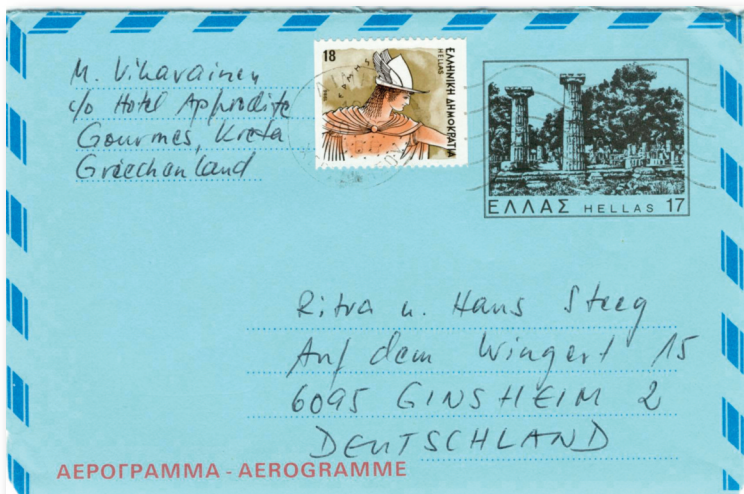 M. Vihavainen
c/o Hotel Aphrodite
Gourmes, Kreta
Griechenland
18
ΕΛΛΗΝΙΚΗ ΔΗΜΟΚΡΑΤΙΑ
HELLAS
ΕΛΛΑΣ HELLAS 17
Ritva u. Hans Steeg
Auf dem Wingert 15
6095 GINSHEIM 2
DEUTSCHLAND
ΑΕΡΟΓΡΑΜΜΑ - AEROGRAMME